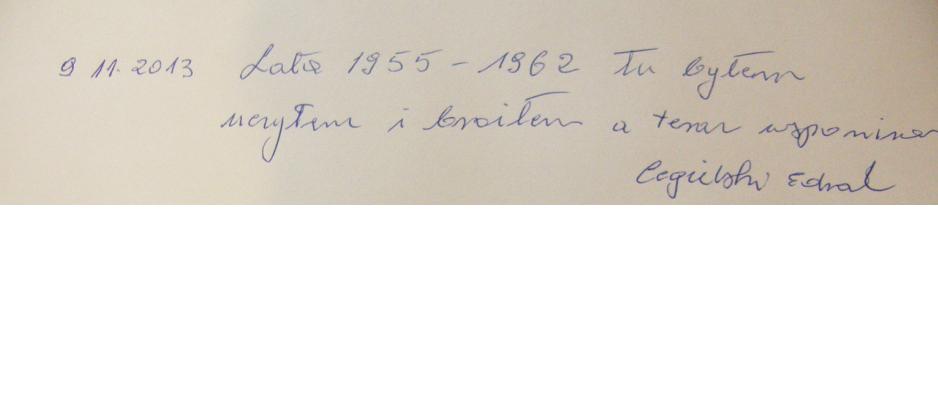 9 11.2013 Lata 1955 - 1962 Tu byłem
uczyłem i broiłem a teraz wspomina
Cegielski